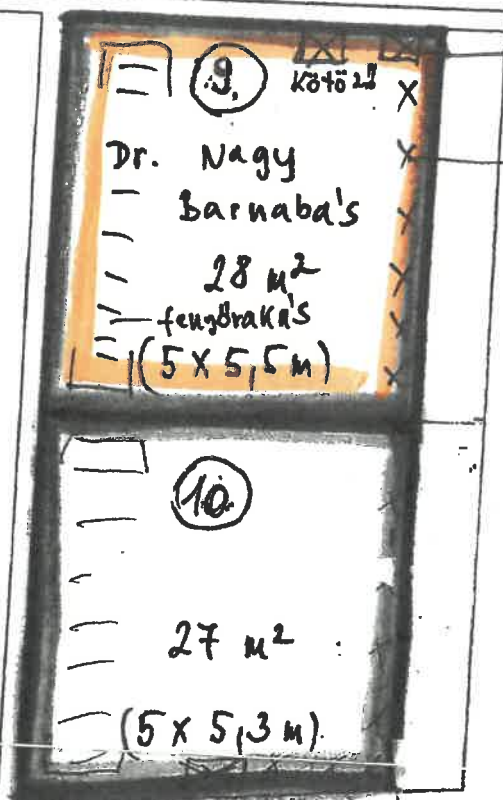 9.
Kötöző
Dr. Nagy
Barnabás
28 m²
fenyőrakás
(5 x 5,5 m)
10.
27 m²
(5 x 5,3 m)